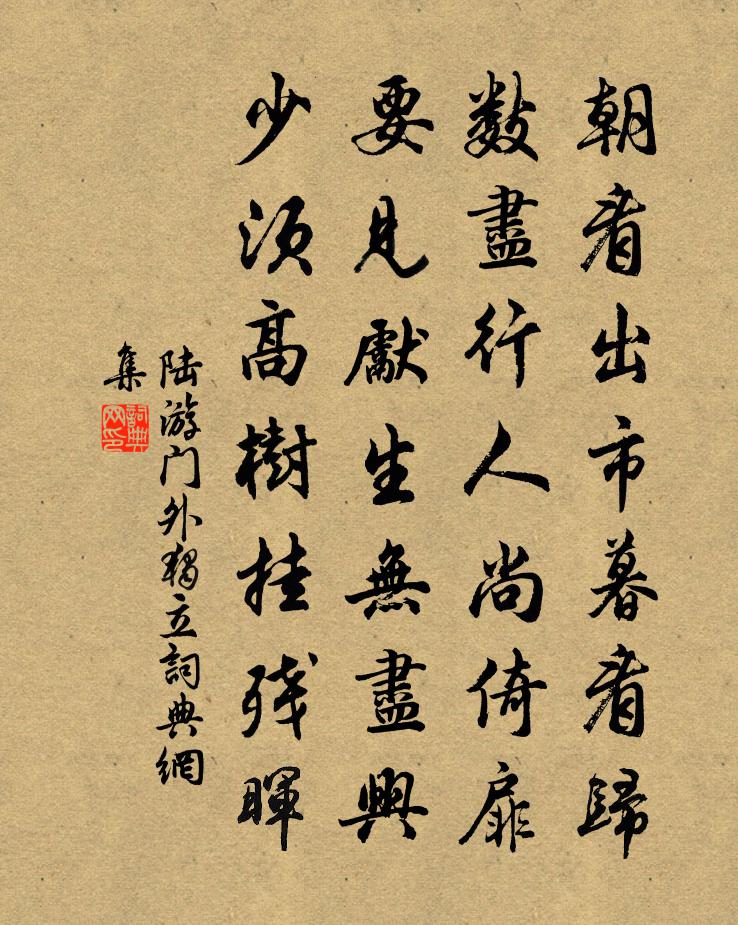 朝看出市暮看歸
數盡行人尚倚扉
要見獻生無盡興
少須高樹挂残暉
陆游门外獨立詞典網
集
詞典
网印